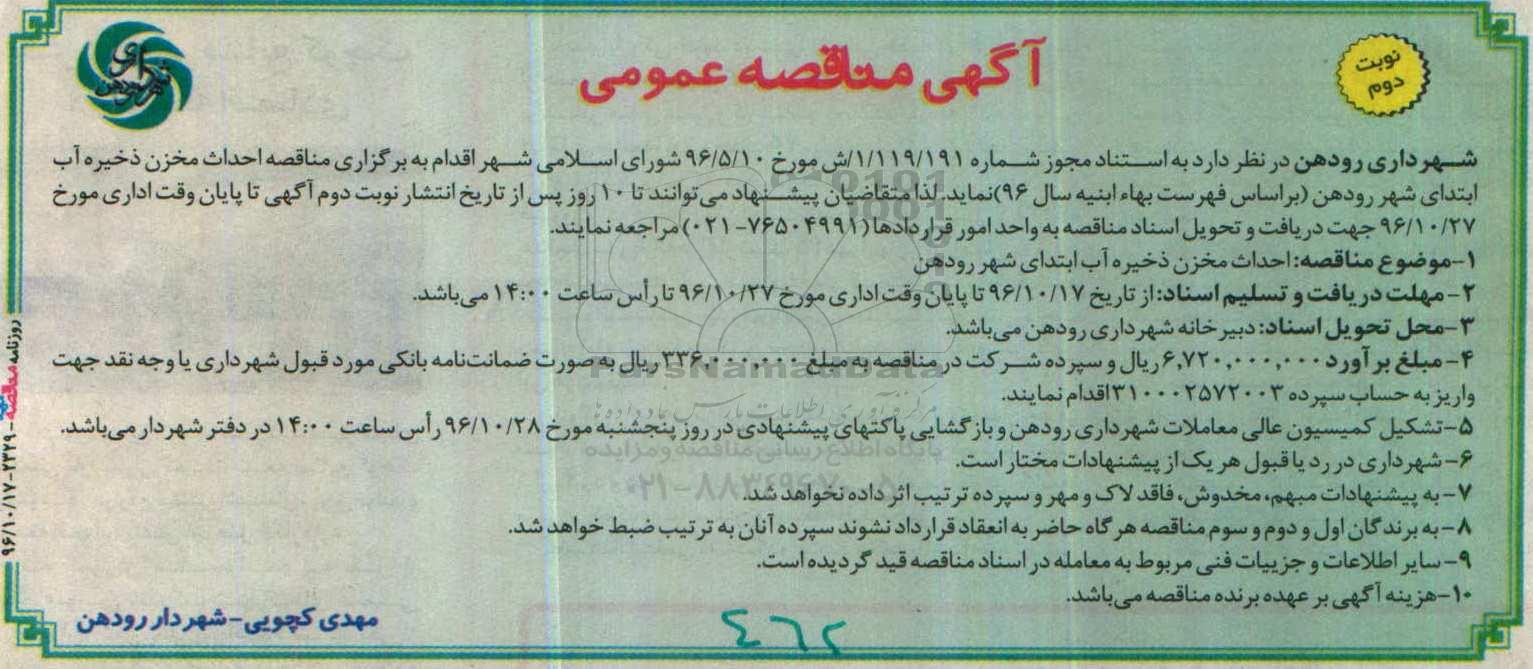 نوبت
دوم
آگهی مناقصه عمومی
شهرداری رودهن
شهرداری رودهن در نظر دارد به استناد مجوز شماره ۱/۱۱۹/۱۹۱/ش مورخ ۹۶/۵/۱۰ شورای اسلامی شهر اقدام به برگزاری مناقصه احداث مخزن ذخیره آب
ابتدای شهر رودهن (براساس فهرست بهاء ابنیه سال ۹۶) نماید. لذا متقاضیان پیشنهاد می‌توانند تا ۱۰ روز پس از تاریخ انتشار نوبت دوم آگهی تا پایان وقت اداری مورخ
۹۶/۱۰/۲۷ جهت دریافت و تحویل اسناد مناقصه به واحد امور قراردادها (۷۶۵۰۴۹۹۱-۰۲۱) مراجعه نمایند.
۱-موضوع مناقصه: احداث مخزن ذخیره آب ابتدای شهر رودهن
۲- مهلت دریافت و تسلیم اسناد: از تاریخ ۹۶/۱۰/۱۷ تا پایان وقت اداری مورخ ۹۶/۱۰/۲۷ تا رأس ساعت ۱۴:۰۰ می‌باشد.
۳-محل تحویل اسناد: دبیرخانه شهرداری رودهن می‌باشد.
۴- مبلغ برآورد ۶,۷۲۰,۰۰۰,۰۰۰ ریال و سپرده شرکت در مناقصه به مبلغ ۳۳۶,۰۰۰,۰۰۰ ریال به صورت ضمانت‌نامه بانکی مورد قبول شهرداری یا وجه نقد جهت
واریز به حساب سپرده ۳۱۰۰۰۲۵۷۲۰۰۳ اقدام نمایند.
۵-تشکیل کمیسیون عالی معاملات شهرداری رودهن و بازگشایی پاکتهای پیشنهادی در روز پنجشنبه مورخ ۹۶/۱۰/۲۸ رأس ساعت ۱۴:۰۰ در دفتر شهردار می‌باشد.
۶- شهرداری در رد یا قبول هر یک از پیشنهادات مختار است.
۷- به پیشنهادات مبهم، مخدوش، فاقد لاک و مهر و سپرده ترتیب اثر داده نخواهد شد.
۸- به برندگان اول و دوم و سوم مناقصه هرگاه حاضر به انعقاد قرارداد نشوند سپرده آنان به ترتیب ضبط خواهد شد.
۹- سایر اطلاعات و جزییات فنی مربوط به معامله در اسناد مناقصه قید گردیده است.
۱۰-هزینه آگهی بر عهده برنده مناقصه می‌باشد.
مهدی کچویی- شهردار رودهن
۴۶۲
روزنامه مناقصه - ۲۳۲۹ - ۹۶/۱۰/۱۷
ParsNamadData
پایگاه اطلاع رسانی مناقصه و مزایده